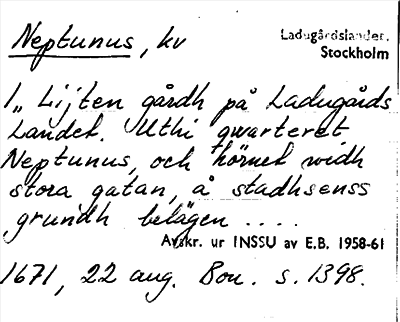 Neptunus, kv
Ladugårdslandet.
Stockholm
1„ Lijten gårdh på Ladugårds
Landet. Uthi qwarteret
Neptunus, och hörnet widh
stora gatan, å stadhsenss
grundh belägen ....
Avskr. ur INSSU av E.B. 1958-61
1671, 22 aug. Bou. s. 1398.